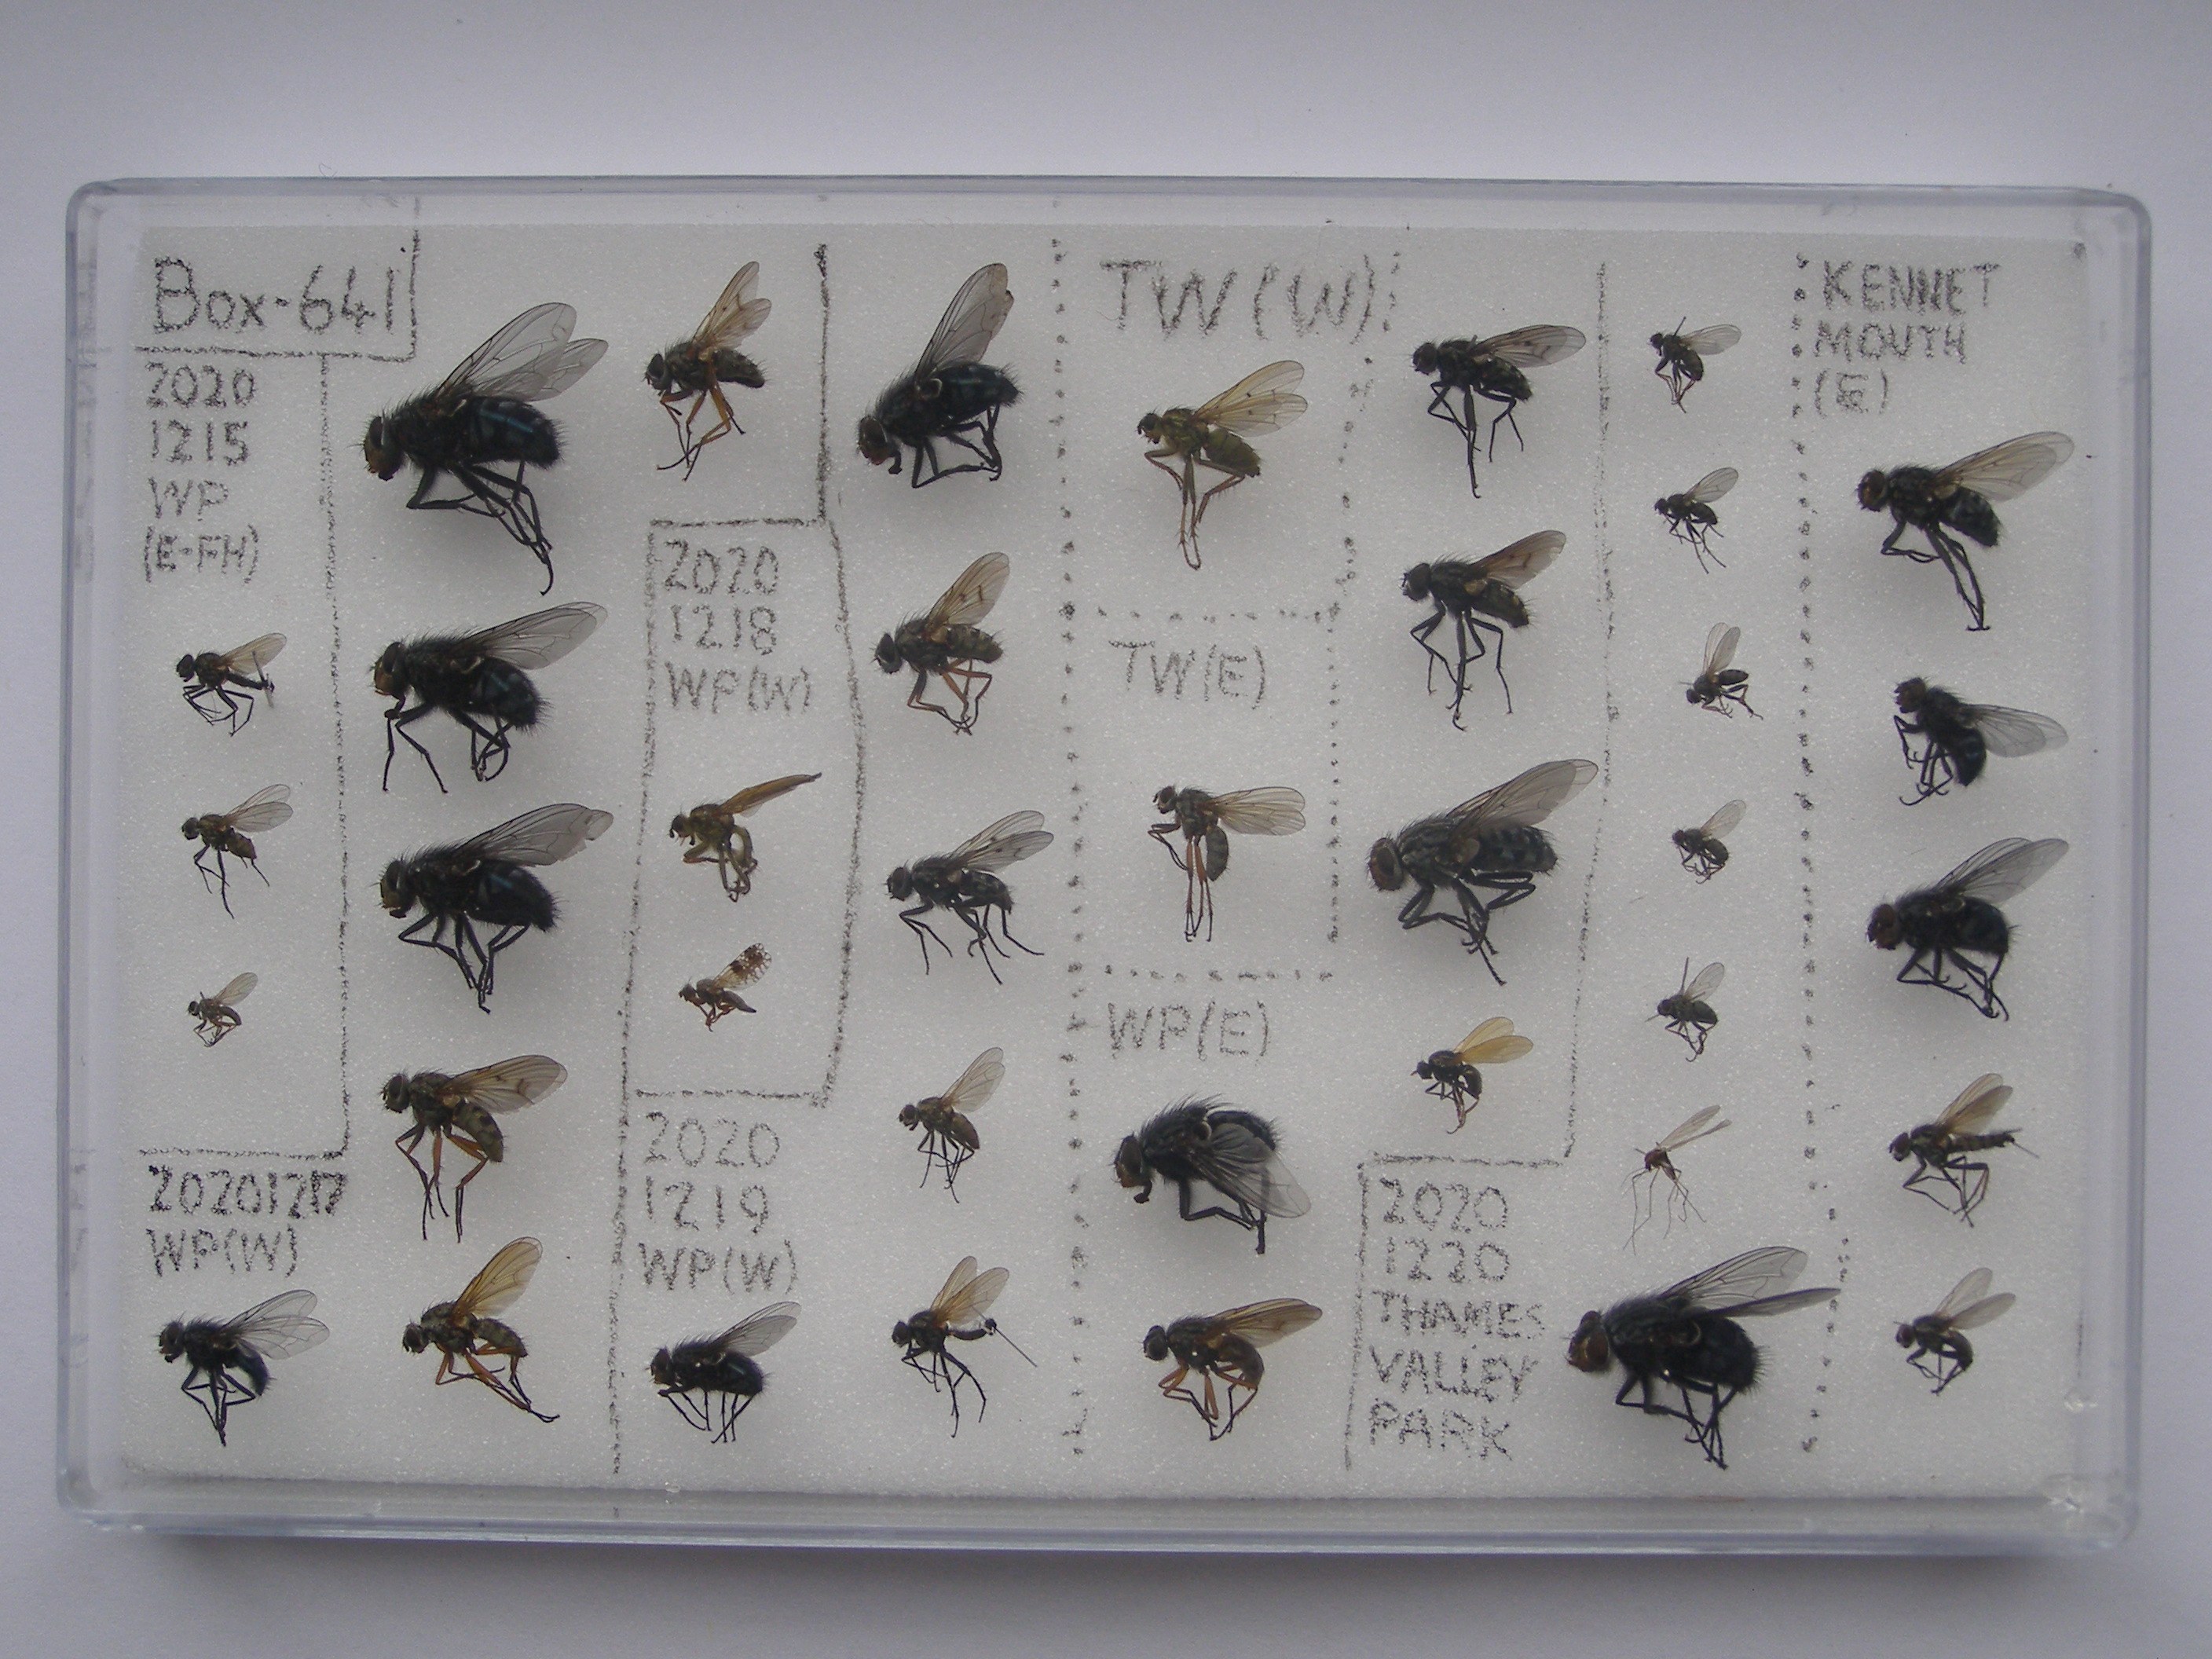 Box-641
2020
1215
WP
(E-FH)
20201217
WP(W)
2020
1218
WP(W)
2020
1219
WP(W)
TW(W)
TW(E)
WP(E)
2020
1220
THAMES
VALLEY
PARK
KENNET
MOUTH
(E)